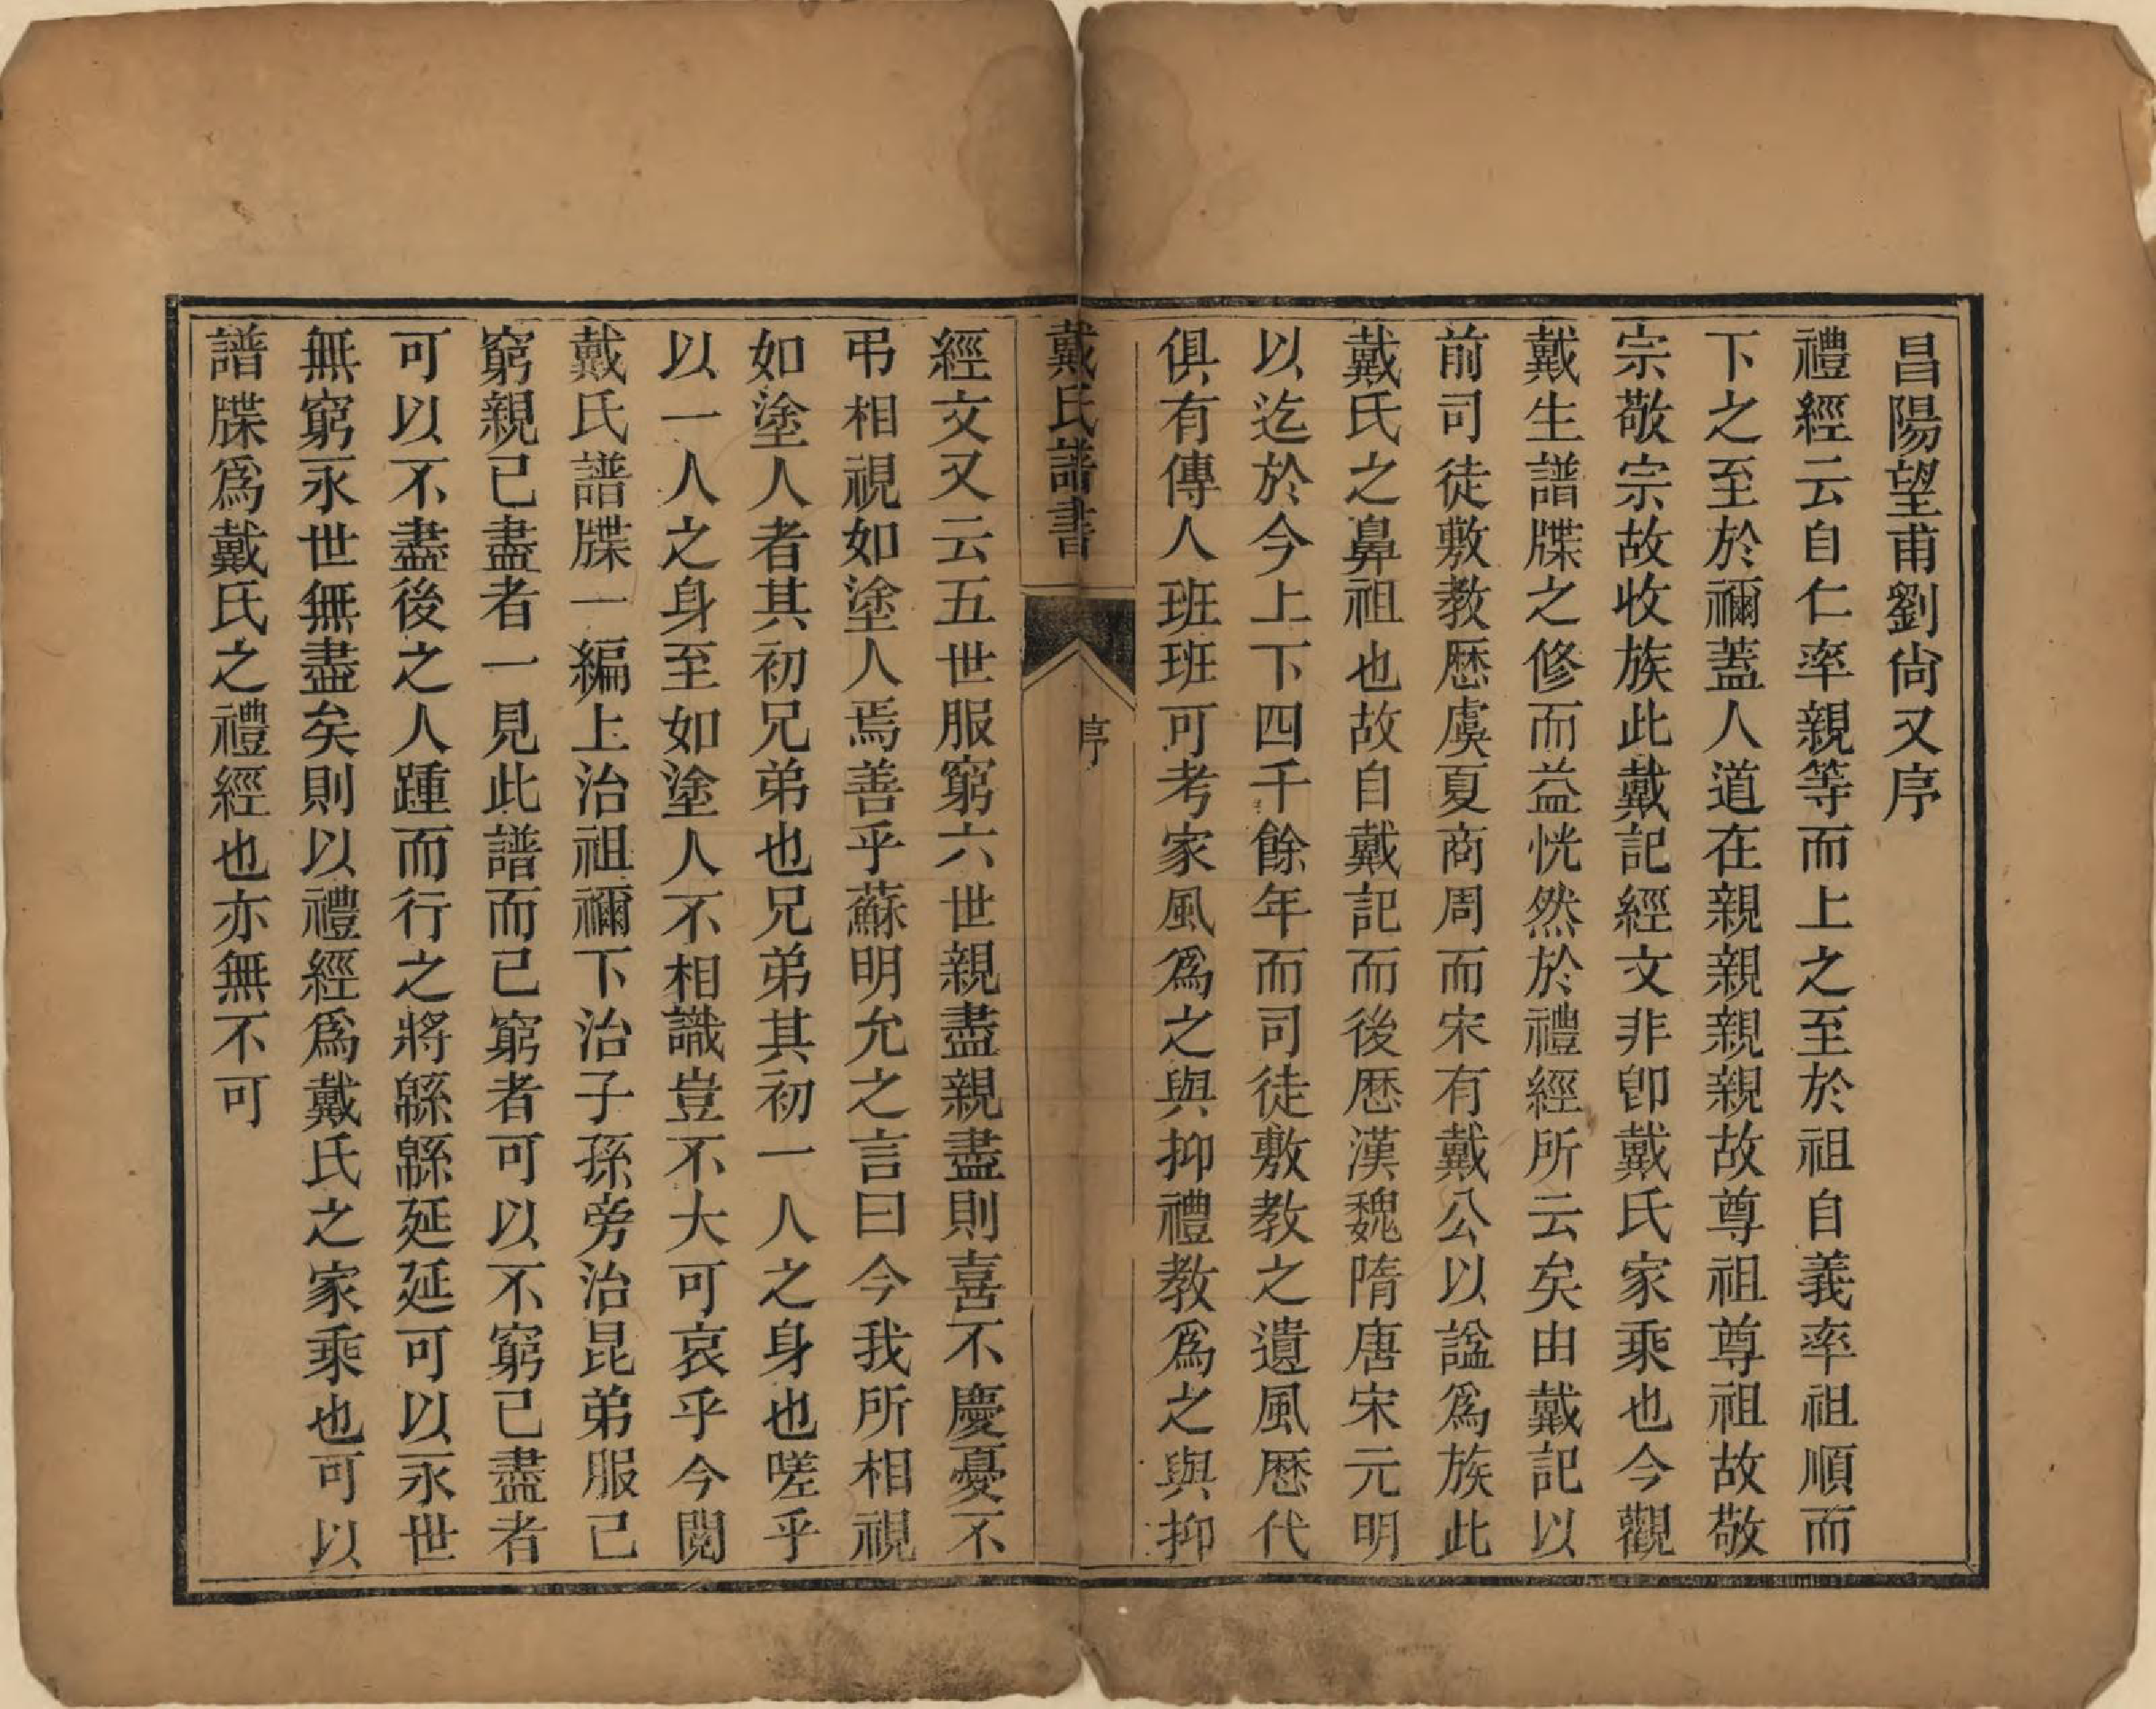 昌陽望甫劉尙又序
禮經云自仁率親等而上之至於祖自義率祖順而
下之至於禰蓋人道在親親親親故尊祖尊祖故敬
宗敬宗故收族此戴記經文非卽戴氏家乘也今觀
戴生譜牒之修而益恍然於禮經所云矣由戴記以
前司徒敷教歷虞夏商周而宋有戴公以諡爲族此
戴氏之鼻祖也故自戴記而後歷漢魏隋唐宋元明
以迄於今上下四千餘年而司徒敷教之遺風歷代
俱有傳人班班可考家風爲之與抑禮教爲之與抑
戴氏譜書
序
經文又云五世服窮六世親盡親盡則喜不慶憂不
弔相視如塗人焉善乎蘇明允之言曰今我所相視
如塗人者其初兄弟也兄弟其初一人之身也嗟乎
以一人之身至如塗人不相識豈不大可哀乎今閱
戴氏譜牒一編上治祖禰下治子孫旁治昆弟服已
窮親已盡者一見此譜而已窮者可以不窮已盡者
可以不盡後之人踵而行之將緜緜延延可以永世
無窮永世無盡矣則以禮經爲戴氏之家乘也可以
譜牒爲戴氏之禮經也亦無不可